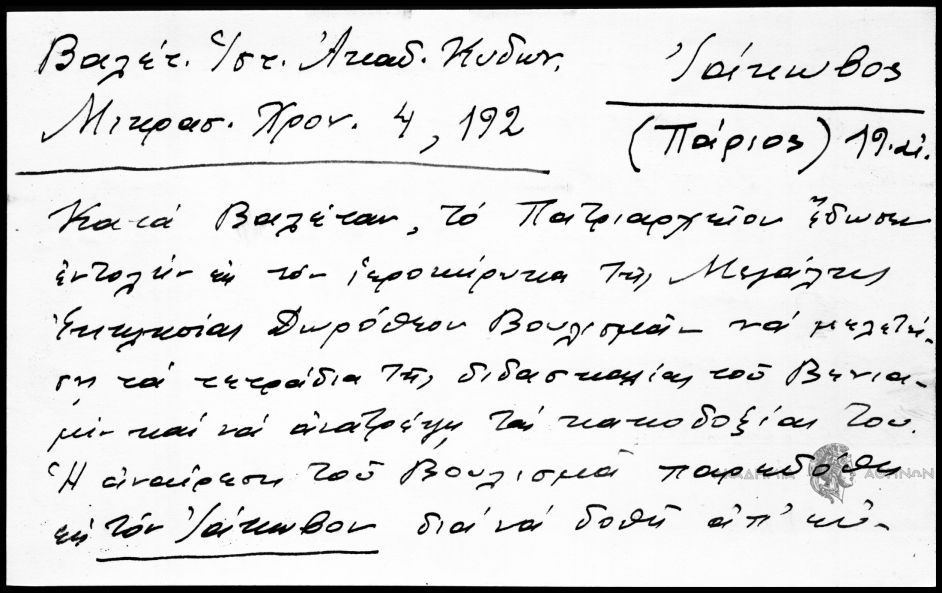 Βαλέτ. Ἱστ. Ἀκαδ. Κυδων.
Μικρασ. Χρον. 4, 192
Ἰάκωβος
(Πάριος) 19.αἰ.
Κατά Βαλέταν, τό Πατριαρχεῖον ἔδωσεν
ἐντολήν εἰς τόν ἱεροκήρυκα τῆς Μεγάλης
Ἐκκλησίας Δωρόθεον Βουλησμᾶν νά μελετή-
σῃ τά τετράδια τῆς διδασκαλίας τοῦ Βενια-
μίν καί νά ἀνατρέψῃ τάς κακοδοξίας του.
Ἡ ἀναίρεση τοῦ Βουλησμᾶ παρεδόθη
εἰς τόν Ἰάκωβον διά νά δοθῆ ἀπ' εὐ-
ΑΚΑΔΗΜΙΑ ΑΘΗΝΩΝ